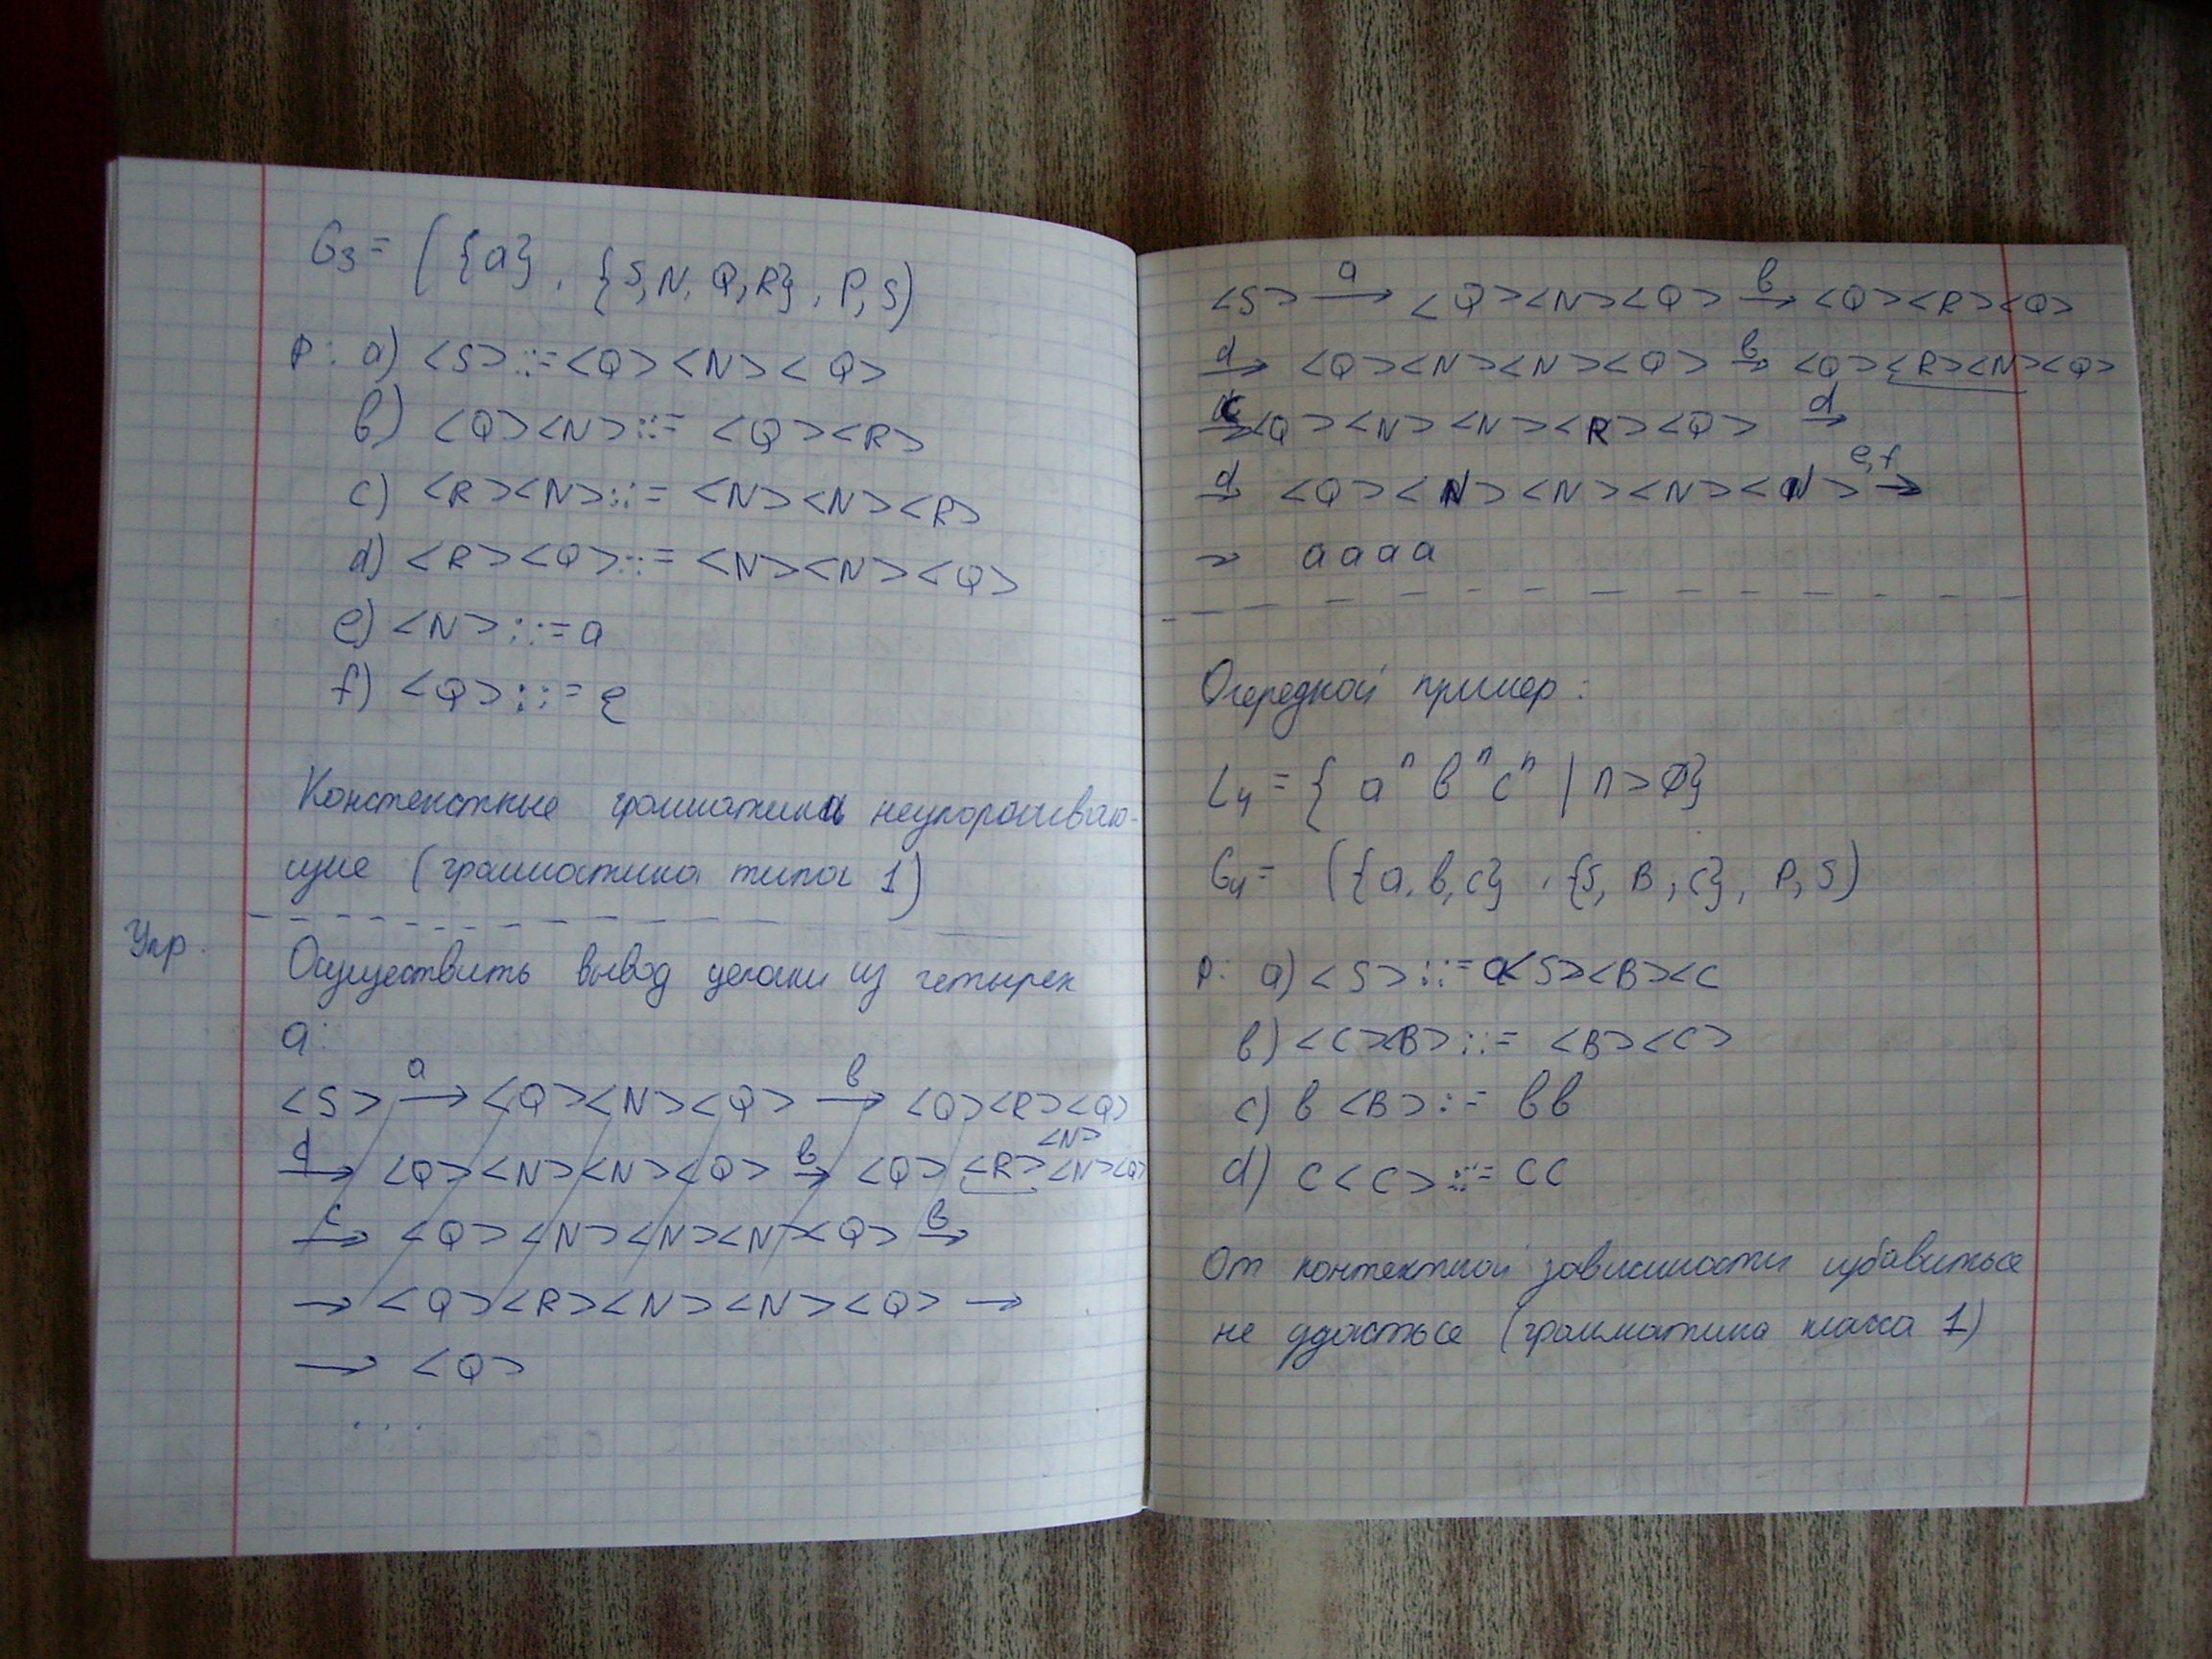 G₃ = ( {a} , {S, N, Q, R} , P, S)
P: a) <S> ::= <Q><N><Q>
в) <Q><N> ::= <Q><R>
c) <R><N> ::= <N><N><R>
d) <R><Q> ::= <N><N><Q>
e) <N> ::= a
f) <Q> ::= ε
Констекстные грамматики неукорачиваю-
щие (грамматика типа 1)
Упр. Осуществить вывод цепочки из четырех
a:
<S> a→ <Q><N><Q> в→ <Q><R><Q>
<N>
d→ <Q><N><N><Q> в→ <Q><R><N><Q>
c→ <Q><N><N><N><Q> в→
→ <Q><R><N><N><Q> →
→ <Q>
...
<S> a→ <Q><N><Q> в→ <Q><R><Q>
d→ <Q><N><N><Q> в→ <Q><R><N><Q>
c→ <Q><N><N><R><Q> d→
d→ <Q><N><N><N><N> e,f→
→ a a a a
Очередной пример:
L₄ = { aⁿ вⁿ cⁿ | n > 0}
G₄ = ({a, в, c} , {S, B, C}, P, S)
P: a) <S> ::= a<S><B><C
в) <C><B> ::= <B><C>
c) в <B> := вв
d) c <C> ::= cc
От контектной зависимости избавиться
не удасться (грамматика класса 1)